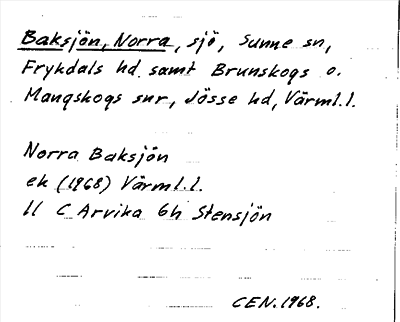 Baksjön, Norra, sjö, Sunne sn,
Frykdals hd samt Brunskogs o.
Mangskogs snr, Jösse hd, Värml.l.
Norra Baksjön
ek (1968) Värml.l.
11 C Arvika 6h Stensjön
CEN.1968.